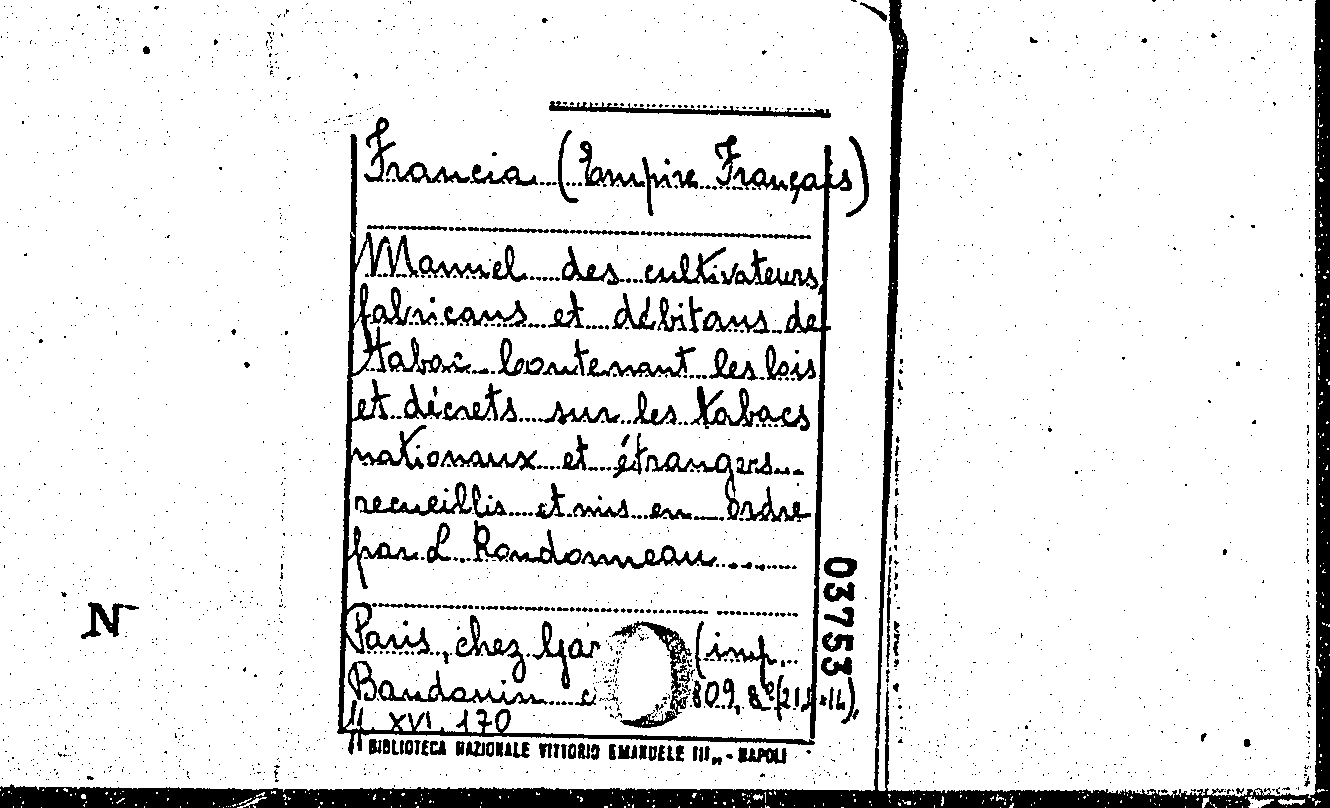 Francia (Empire Français)
Manuel des cultivateurs,
fabricans et débitans de
tabac contenant les lois
et décrets sur les tabacs
nationaux et étrangers...
recueillis et mis en ordre
par L Rondonneau....
Paris, chez Gar (imp.
Baudouin 809, 8°
pp. XVI, 170
BIBLIOTECA NAZIONALE VITTORIO EMANUELE III„ - NAPOLI
03753
N